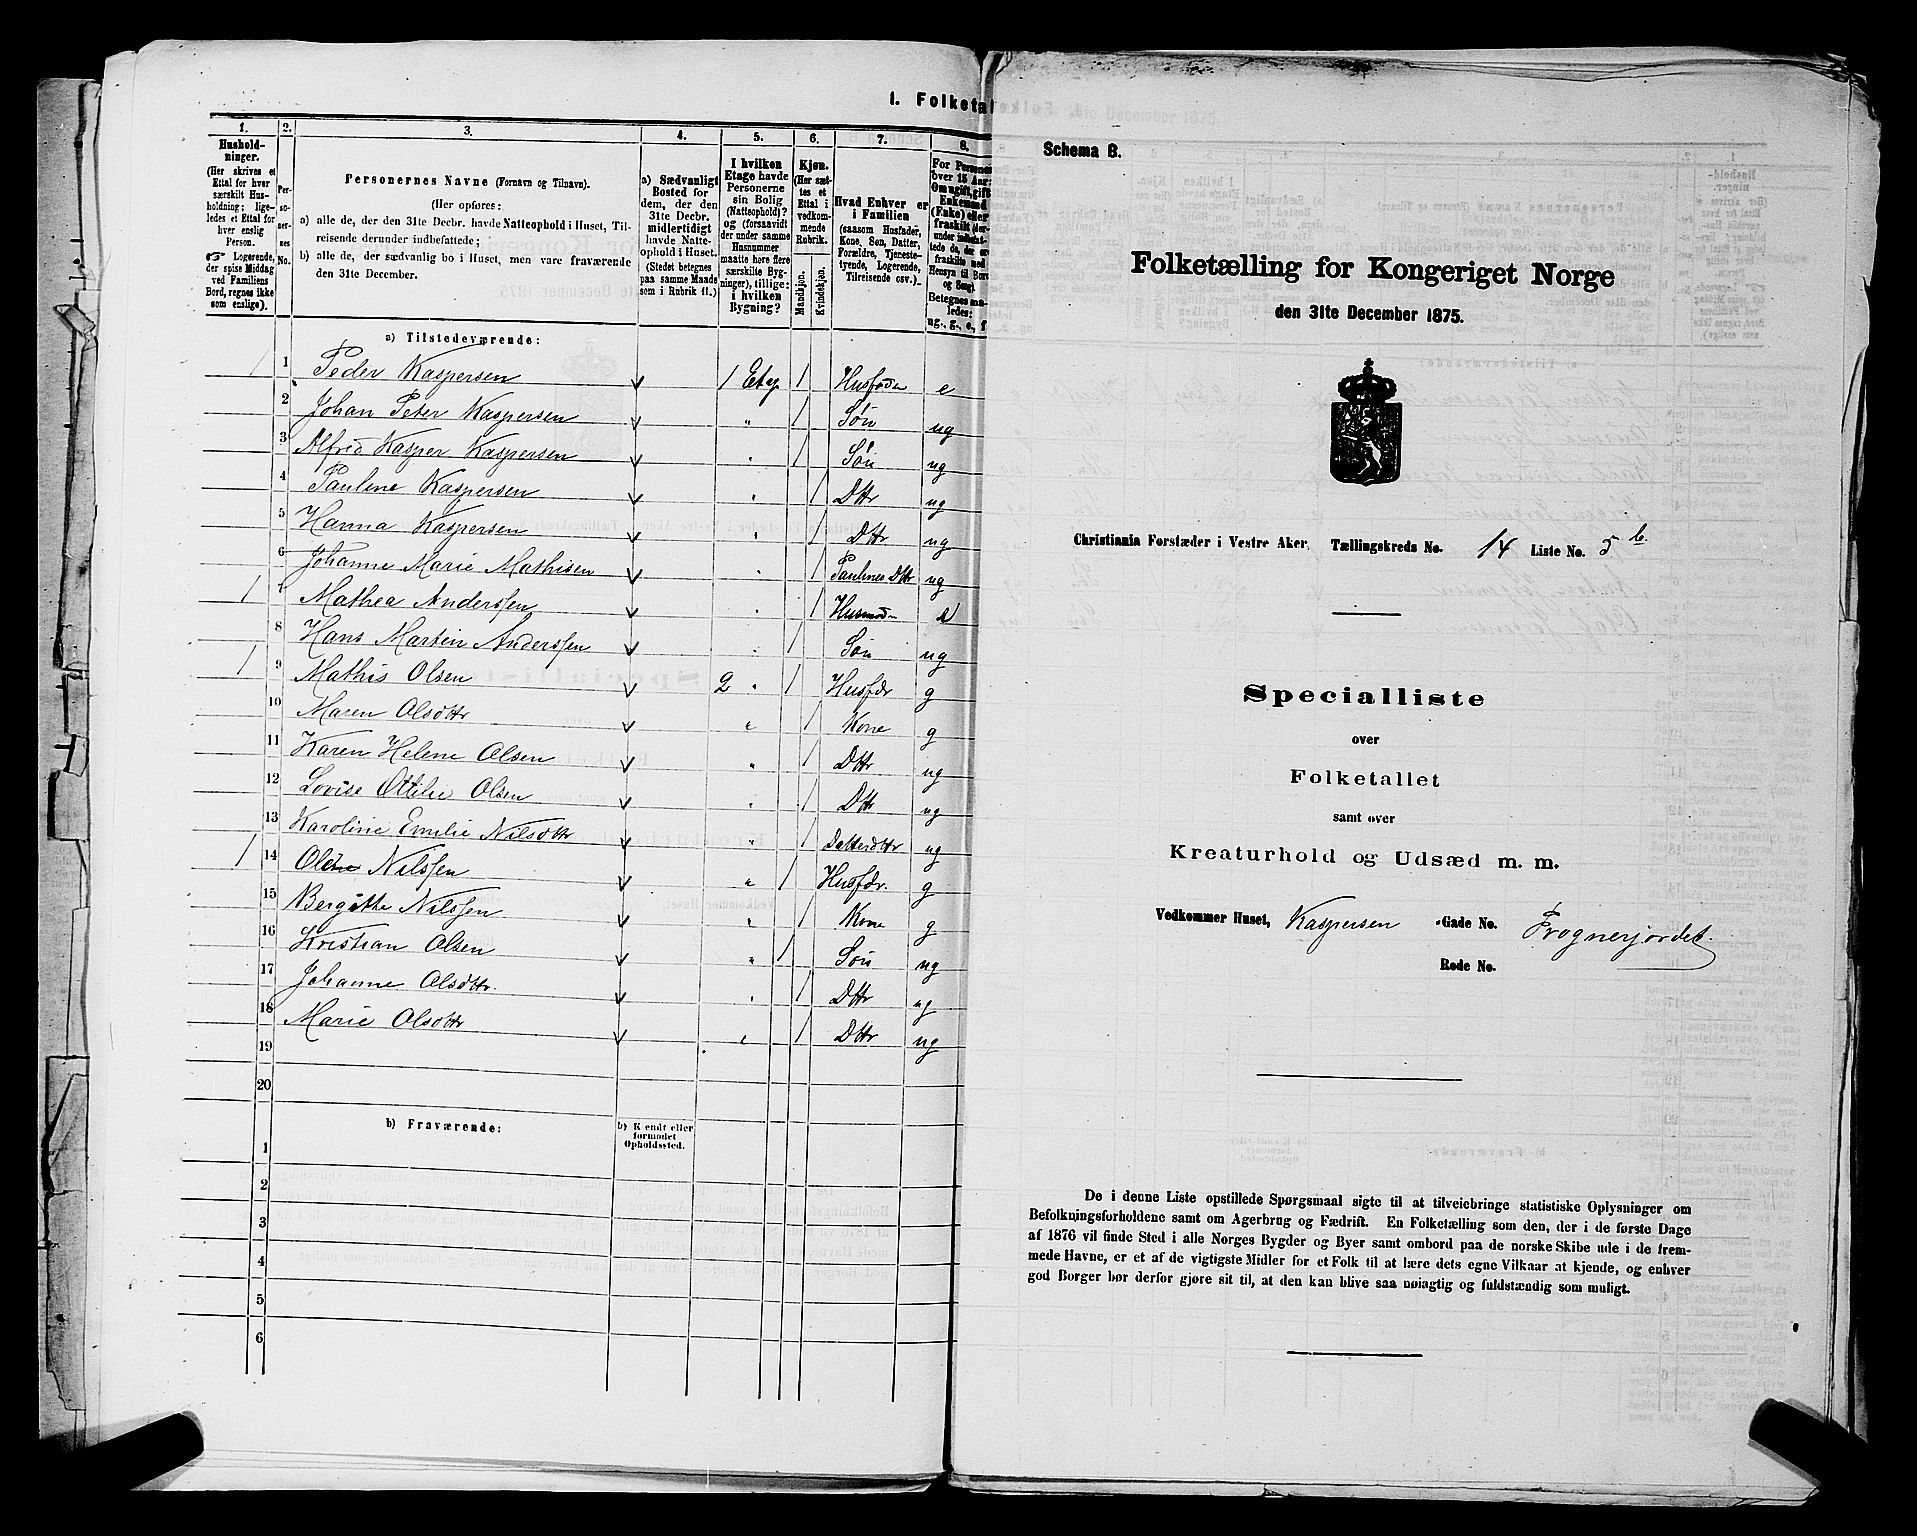 I. Folketal
1. 2. 3. 4. 5. 6. 7. 8.
Hushold-
ninger.
(Her skrives et
Ettal for hver
særskilt Hus-
holdning; lige-
ledes et Ettal for
hver enslig
Person.
Logerende,
der spise Middag
ved Familiens
Bord, regnes ikke
som enslige).
Per-
so-
ner-
nes
No.
Personernes Navne (Fornavn og Tilnavn).
(Her opføres:
a) alle de, der den 31te Decbr. havde Natteophold i Huset, Til-
reisende derunder indbefattede;
b) alle de, der sædvanlig bo i Huset, men vare fraværende
den 31te December.
a) Sædvanligt
Bosted for
dem, der den
31te Decbr.
midlertidigt
havde Natte-
ophold i Huset.
(Stedet betegnes
paa samme Maade
som i Rubrik 11.)
I hvilken
Etage havde
Personerne
sin Bolig
(Natteophold)?
og (forsaavidt
der under samme
Husnummer
maatte høre flere
særskilte Byg-
ninger), tillige:
i hvilken
Bygning?
Kjøn.
(Her sæt-
tes et
Ettal i
vedkom-
mende
Rubrik.
Mandkjøn.
Kvindekjøn.
Hvad Enhver er
i Familien
(saasom Husfader,
Kone, Søn, Datter,
Forældre, Tjeneste-
tyende, Logerende,
Tilreisende osv.).
For Personer
over 15 Aar:
Om ugift, gift
Enkemand
(Enke) eller
fraskilt
og Seng).
Betegnes saa-
ledes:
ug., g., e, f
a) Tilstedeværende:
1 1 Peder Kaspersen v 1 Etg. 1 Husfader e
2 Johan Peter Kaspersen v " 1 Søn ug
3 Alfred Kasper Kaspersen v " 1 Søn ug
4 Pauline Kaspersen v " 1 Dttr ug
5 Hanna Kaspersen v " 1 Dttr ug
6 Johanne Marie Mathisen v " 1 Paulines Dttr ug
1 7 Mathea Anderssen v " 1 Husmoder e
8 Hans Martin Anderssen v " 1 Søn ug
1 9 Mathis Olsen v 2 " 1 Husfdr g
10 Maren Olsdttr v " 1 Kone g
11 Karen Helene Olsen v " 1 Dttr ug
12 Lovise Ottilie Olsen v " 1 Dttr ug
13 Karoline Emilie Nilsdttr v " 1 Datterdttr ug
1 14 Ole Nilssen v " 1 Husfdr. g
15 Bergitte Nilssen v " 1 Kone g
16 Kristian Olsen v " 1 Søn ug
17 Johanne Olsdttr. v " 1 Dttr ug
18 Marie Olsdttr v " 1 Dttr ug
19
20
b) Fraværende:
b) Kjendt eller
formodet
Opholdssted.
1
2
3
4
5
6
Schema B.
Folketælling for Kongeriget Norge
den 31te December 1875.
Christiania Forstæder i Vestre Aker. Tællingskreds No. 14 Liste No. 5 b.
Specialliste
over
Folketallet
samt over
Kreaturhold og Udsæd m. m.
Vedkommer Huset, Kaspersen Gade No. Frognerjordet.
Rode No.
De i denne Liste opstillede Spørgsmaal sigte til at tilveiebringe statistiske Oplysninger om
Befolkningsforholdene samt om Agerbrug og Fædrift. En Folketælling som den, der i de første Dage
af 1876 vil finde Sted i alle Norges Bygder og Byer samt ombord paa de norske Skibe ude i de frem-
mede Havne, er et af de vigtigste Midler for et Folk til at lære dets egne Vilkaar at kjende, og enhver
god Borger bør derfor gjøre sit til, at den kan blive saa nøiagtig og fuldstændig som muligt.